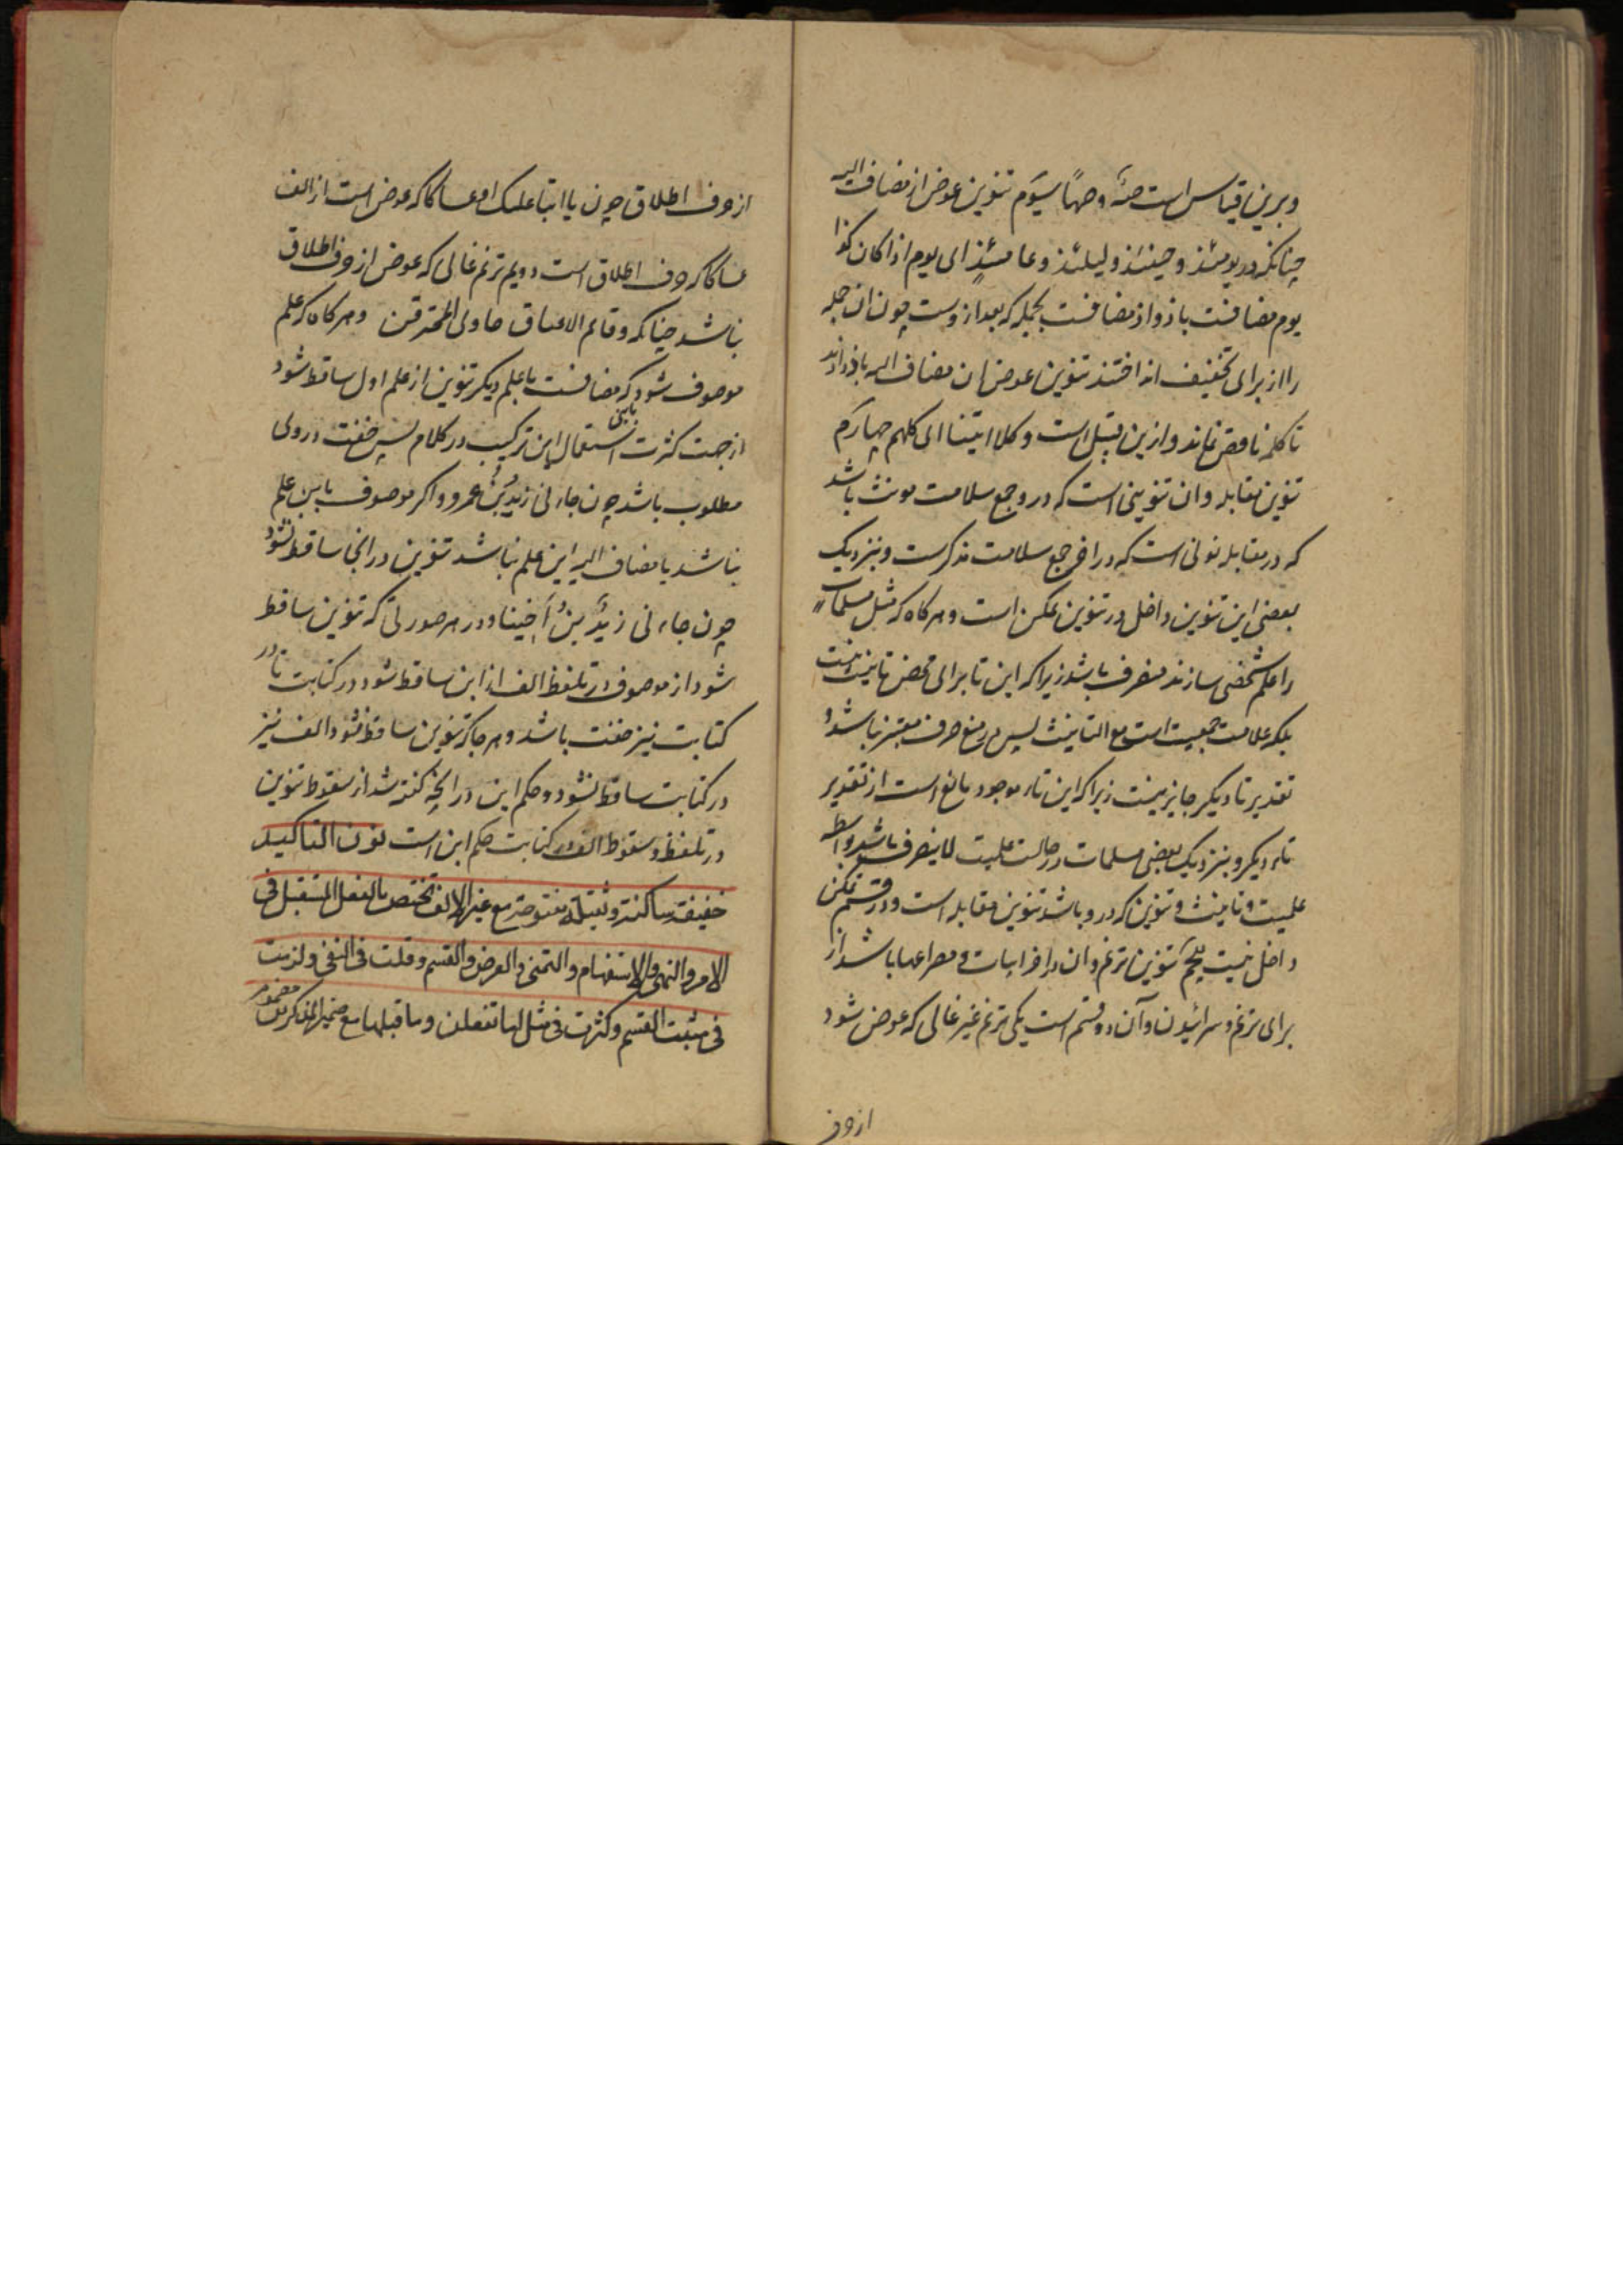 وبرین قیاس است صهٍ و صهًا سیوم تنوین عوض از مضاف الیه
چنانکه در یومئذ و حینئذ ولیلئذ وعامئذٍ ای یوم اذا کان کذا
یوم مضافست باذ و اذ مضافست بجمله که بعد ازوست چون ان جمله
را از برای تخفیف انداختند تنوین عوض ان مضاف الیه باذ دادند
تا کلمه ناقص نماند و ازین قبیل است وکلا اتینا ای کلهم چهارم
تنوین مقابله وان تنوینی است که در جمع سلامت مونث باشد
که در مقابله نونی است که در اخر جمع سلامت مذکرست و بنزدیک
بعضی این تنوین داخل در تنوین تمکن است و هرکاه که مثل مسلمات
را علم شخصی سازند منصرف باشد زیرا که این تا برای محض تانیث نیست
بلکه علامت جمعیت است مع التانیث پس در منع صرف معتبر نباشد و
تقدیر تا دیکر جایز نیست زیرا که این تاء موجود مانع است از تقدیر
تاء دیکر و بنزدیک بعضی مسلمات در حالت علمیت لا ینصرف باشد بواسطه
علمیت و تانیث و تنوین که درو باشد تنوین مقابله است و در قسم تمکن
داخل نیست پنجم تنوین ترنم وان در اخر ابیات و مصراعها باشد از
برای ترنم و سرائیدن وآن دو قسم است یکی ترنم غیر غالی که عوض شود
از حرف
از حرف اطلاق چون یا ابتا علک او عساکا که عوض است از الف
عساکا که حرف اطلاق است دویم ترنم غالی که عوض از حرف اطلاق
نباشد چنانکه وقاتم الاعماق خاوی المخترقن وهرکاه که علم
موصوف شود بابنی که مضافست باعلم دیکر تنوین از علم اول ساقط شود
از جهت کثرت استعمال این ترکیب در کلام پس خفت در وی
مطلوب باشد چون جاءنی زیدُ بنُ عمرو واکر موصوف بابن علم
نباشد یا مضاف الیه ابن علم نباشد تنوین در انجا ساقط نشود
چون جاءنی زیدٌ بنُ اَخینا و در هر صورتی که تنوین ساقط
شود از موصوف در تلفظ الف از ابن ساقط شود در کتابت تا در
کتابت نیز خفت باشد و هرجا که تنوین ساقط نشود الف نیز
در کتابت ساقط نشود و حکم ابنه در انچه کفته شد از سقوط تنوین
در تلفظ و سقوط الف در کتابت حکم ابن است نون التاکید
خفیفة ساکنة وثقیلة مفتوحة مع غیر الالف تختص بالفعل المستقبل فی
الامر والنهی والاستفهام والتمنی والعرض والقسم وقلت فی النفی ولزمت
فی مثبت القسم وکثرت فی مثل اما تفعلن وما قبلها مع ضمیر المذکرین مضموم